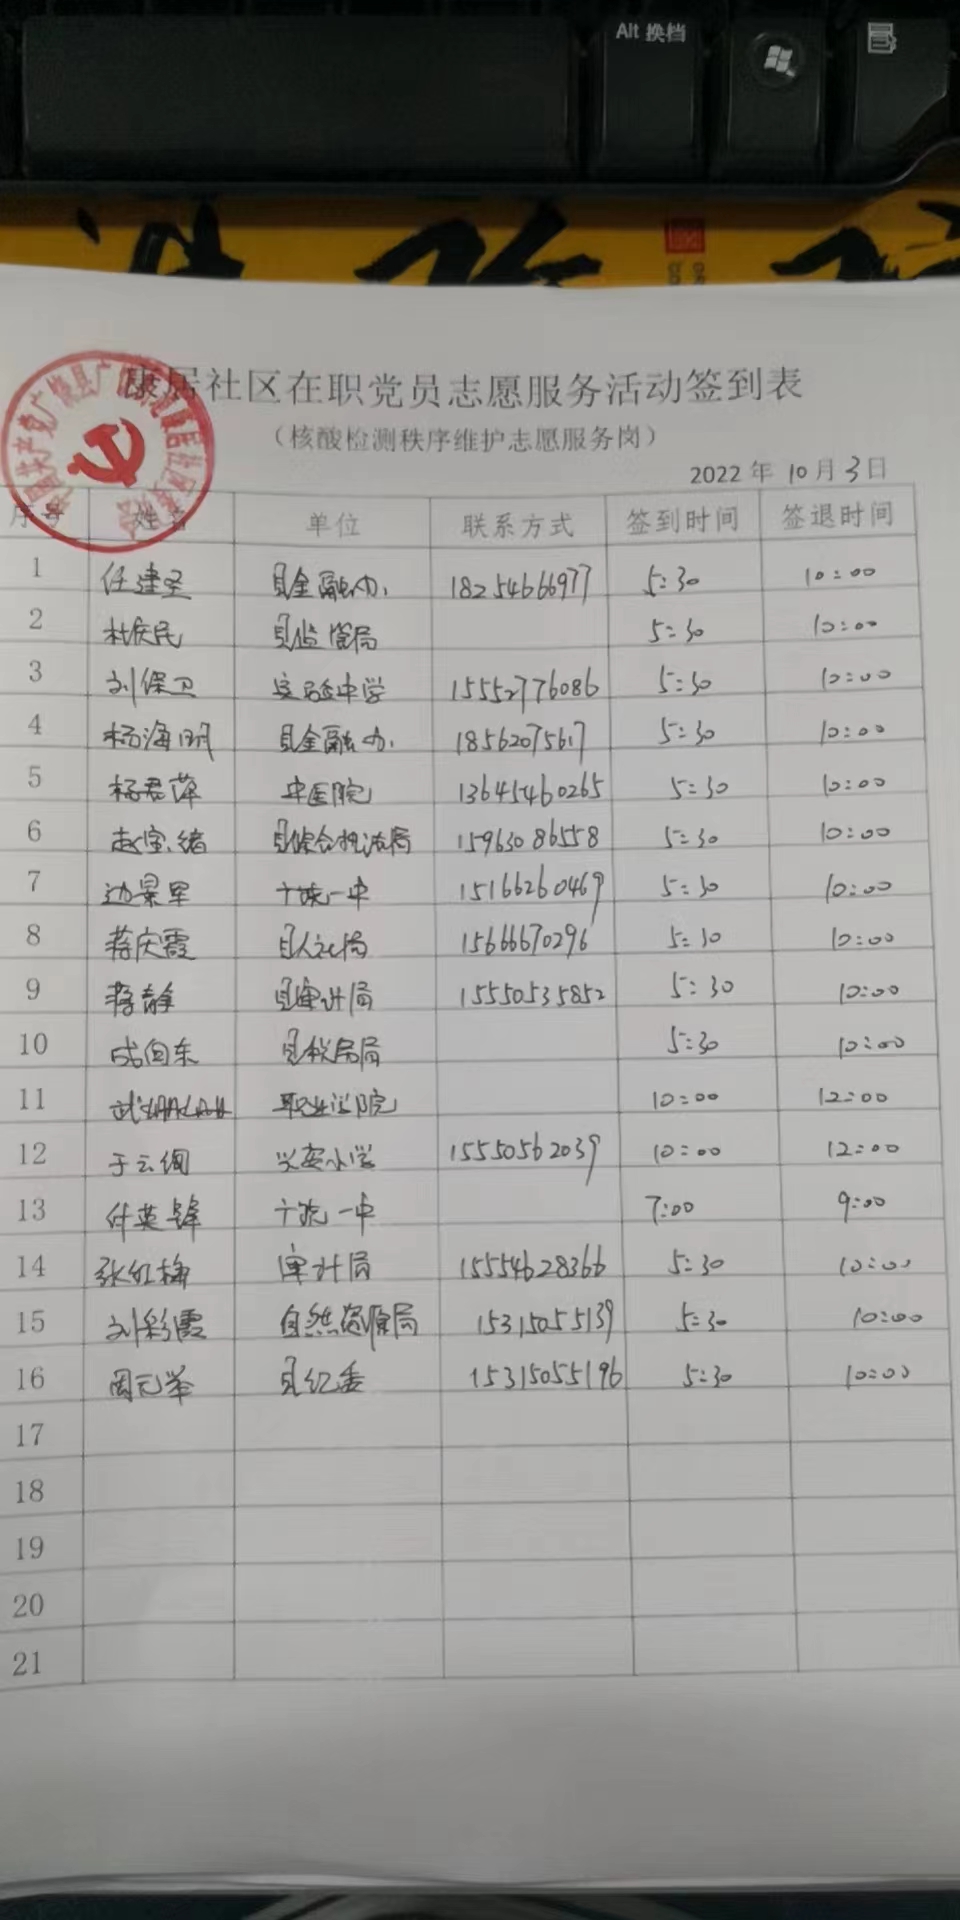 Alt 换档
康居社区在职党员志愿服务活动签到表
（核酸检测秩序维护志愿服务岗）
2022 年 10 月 3 日
序号 姓名 单位 联系方式 签到时间 签退时间
1 任建圣 县金融办 18254666977 5:30 10:00
2 杜庆民 县监管局 5:30 10:00
3 刘保卫 实验中学 15552776086 5:30 10:00
4 杨海明 县金融办 18562075617 5:30 10:00
5 杨君萍 中医院 13645460265 5:30 10:00
6 赵宝绪 县综合执法局 15963086558 5:30 10:00
7 边景军 广饶一中 15166260469 5:30 10:00
8 蒋庆霞 县人社局 15666670296 5:30 10:00
9 蒋静 县审计局 15550535852 5:30 10:00
10 县税务局 5:30 10:00
11 职业学院 10:00 12:00
12 于云 兴安小学 15550562039 10:00 12:00
13 付英锋 广饶一中 7:00 9:00
14 张红梅 审计局 15554628366 5:30 10:00
15 刘彩霞 自然资源局 15315055139 5:30 10:00
16 周元举 县纪委 15315055196 5:30 10:00
17
18
19
20
21